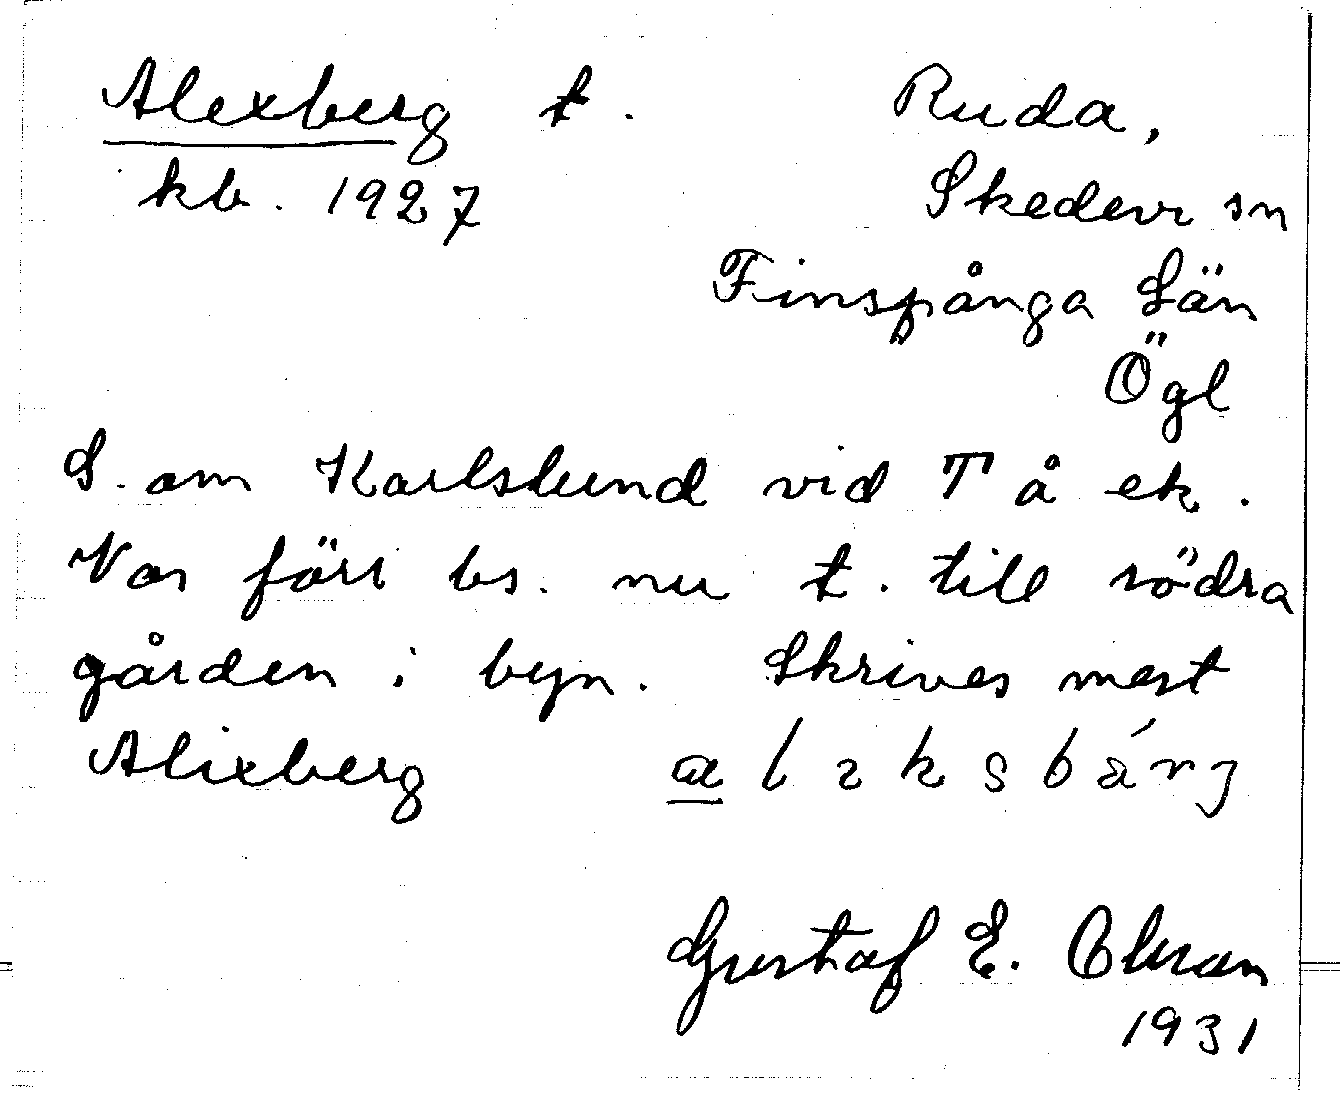 Alexberg t. Ruda,
kb. 1927 Skedevi sn
Finspånga Län
Ögl
S. om Karlslund vid T å ek.
Var förr bs. nu t. till södra
gården i byn. Skrives mest
Alixberg a l ı k s b ä r j
Gustaf E. Olsson
1931